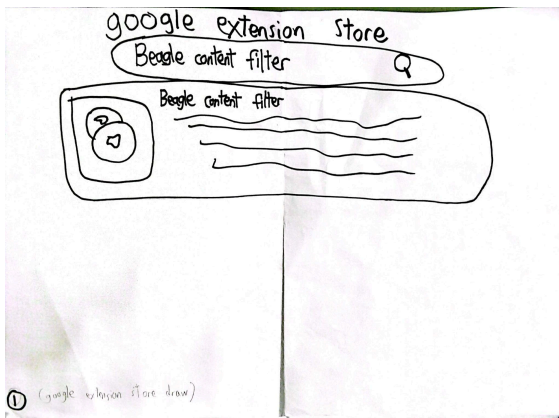 google extension store
Beagle content filter
Beagle content filter
1 (google extension store draw)